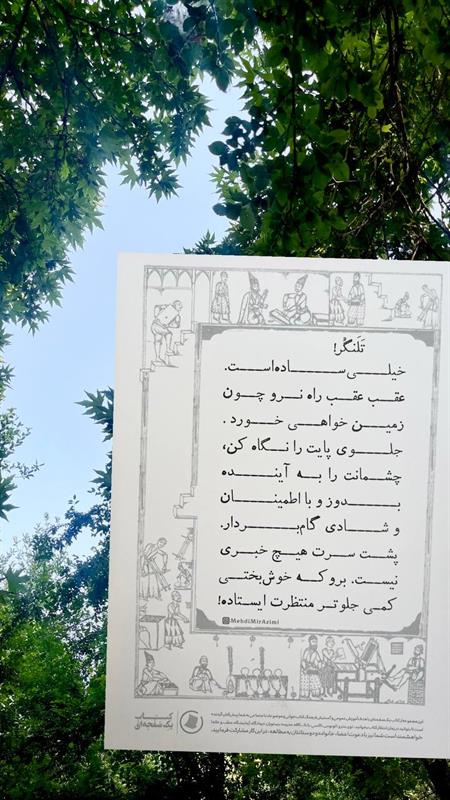 تَلَنگُر!
خیلی ساده‌است.
عقب عقب راه نرو چون
زمین خواهی خورد.
جلوی پایت را نگاه کن،
چشمانت را به آینده
بدوز و با اطمینان
و شادی گام‌بردار.
پشت سرت هیچ خبری
نیست. برو که خوش‌بختی
کمی جلوتر منتظرت ایستاده!
MehdiMirAzimi
کتاب
یک صفحه‌ای